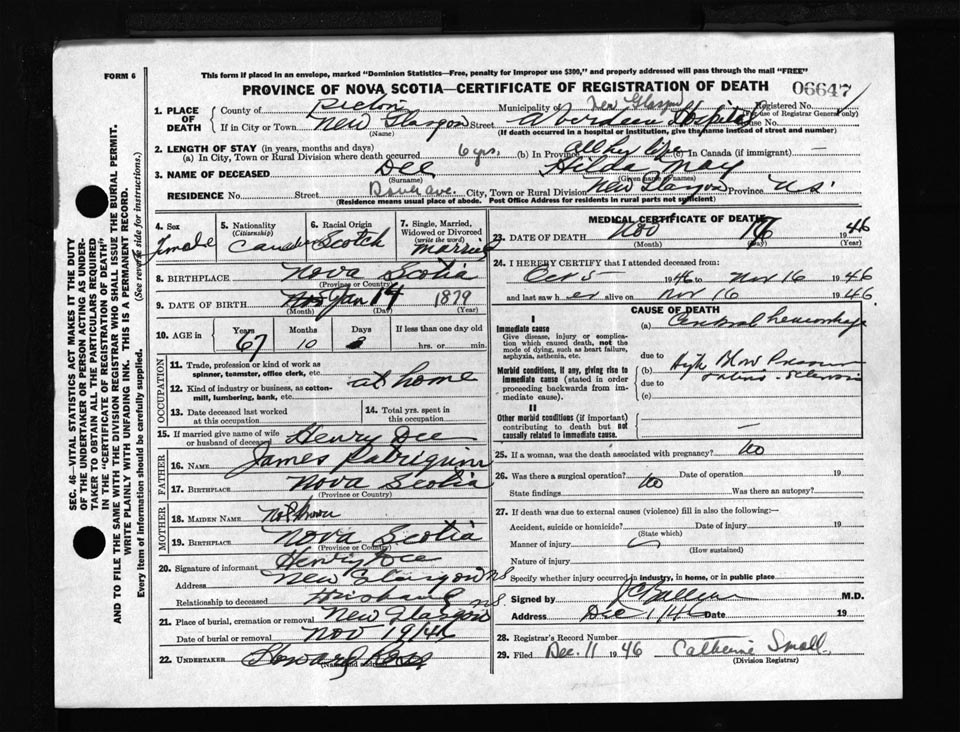 FORM 6
This form if placed in an envelope, marked "Dominion Statistics—Free, penalty for improper use $300," and properly addressed will pass through the mail "FREE"
PROVINCE OF NOVA SCOTIA—CERTIFICATE OF REGISTRATION OF DEATH 06647
1. PLACE OF DEATH
County of Pictou Municipality of New Glasgow Registered No.
(For use of Registrar General only)
If in City or Town New Glasgow Street Aberdeen Hospital House No.
(Name) (If death occurred in a hospital or institution, give the name instead of street and number)
2. LENGTH OF STAY (in years, months and days)
(a) In City, Town or Rural Division where death occurred 6 yrs. (b) In Province All her life (c) In Canada (if immigrant) —
3. NAME OF DECEASED Dee Hilda May
(Surname) (Given name or names)
RESIDENCE No. Street ave. City, Town or Rural Division New Glasgow Province N.S.
(Residence means usual place of abode. Post Office Address for residents in rural parts not sufficient)
4. Sex Female
5. Nationality (Citizenship) Canadian
6. Racial Origin Scotch
7. Single, Married, Widowed or Divorced (write the word) Married
8. BIRTHPLACE Nova Scotia
(Province or Country)
9. DATE OF BIRTH Jan 14 1879
(Month) (Day) (Year)
10. AGE in Years 67 Months 10 Days If less than one day old hrs. or min.
OCCUPATION
11. Trade, profession or kind of work as spinner, teamster, office clerk, etc. at home
12. Kind of industry or business, as cotton-mill, lumbering, bank, etc.
13. Date deceased last worked at this occupation
14. Total yrs. spent in this occupation
15. If married give name of wife or husband of deceased Henry Dee
FATHER
16. NAME James Patriquin
17. BIRTHPLACE Nova Scotia
(Province or Country)
MOTHER
18. MAIDEN NAME Not known
19. BIRTHPLACE Nova Scotia
(Province or Country)
20. Signature of informant Henry Dee
Address New Glasgow N.S.
Relationship to deceased Husband
21. Place of burial, cremation or removal New Glasgow N.S.
Date of burial or removal Nov 19/46
22. UNDERTAKER Howard
(Name and address)
MEDICAL CERTIFICATE OF DEATH
23. DATE OF DEATH Nov 16 1946
(Month) (Day) (Year)
24. I HEREBY CERTIFY that I attended deceased from:
Oct 5 1946 to Nov 16 1946
and last saw her alive on Nov 16 1946.
CAUSE OF DEATH
I
Immediate cause
Give disease, injury or complication which caused death, not the mode of dying, such as heart failure, asphyxia, asthenia, etc.
(a) Cerebral hemorrhage
due to
Morbid conditions, if any, giving rise to immediate cause (stated in order proceeding backwards from immediate cause).
(b) High Blood Pressure
due to
(c)
II
Other morbid conditions (if important) contributing to death but not causally related to immediate cause.
—
25. If a woman, was the death associated with pregnancy? No
26. Was there a surgical operation? No Date of operation 19
State findings Was there an autopsy?
27. If death was due to external causes (violence) fill in also the following:—
Accident, suicide or homicide? Date of injury 19
(State which)
Manner of injury
(How sustained)
Nature of injury
Specify whether injury occurred in industry, in home, or in public place
Signed by M.D.
Address Dec 1/46 Date 19
28. Registrar's Record Number
29. Filed Dec. 11 1946 Catherine Small.
(Division Registrar)
SEC. 46—VITAL STATISTICS ACT MAKES IT THE DUTY OF THE UNDERTAKER OR PERSON ACTING AS UNDERTAKER TO OBTAIN ALL THE PARTICULARS REQUIRED IN THE "CERTIFICATE OF REGISTRATION OF DEATH" AND TO FILE THE SAME WITH THE DIVISION REGISTRAR WHO SHALL ISSUE THE BURIAL PERMIT.
WRITE PLAINLY WITH UNFADING INK. THIS IS A PERMANENT RECORD.
Every item of information should be carefully supplied. (See reverse side for instructions).